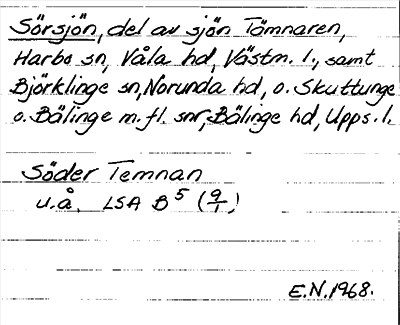 Sörsjön, del av sjön Tämnaren,
Harbo sn, Våla hd, Västm. l., samt
Björklinge sn, Norunda hd, o. Skuttunge
o. Bälinge m. fl. snr, Bälinge hd, Upps. l.
Söder Temnan
u.å. LSA B⁵ (9/1)
E.N. 1968.